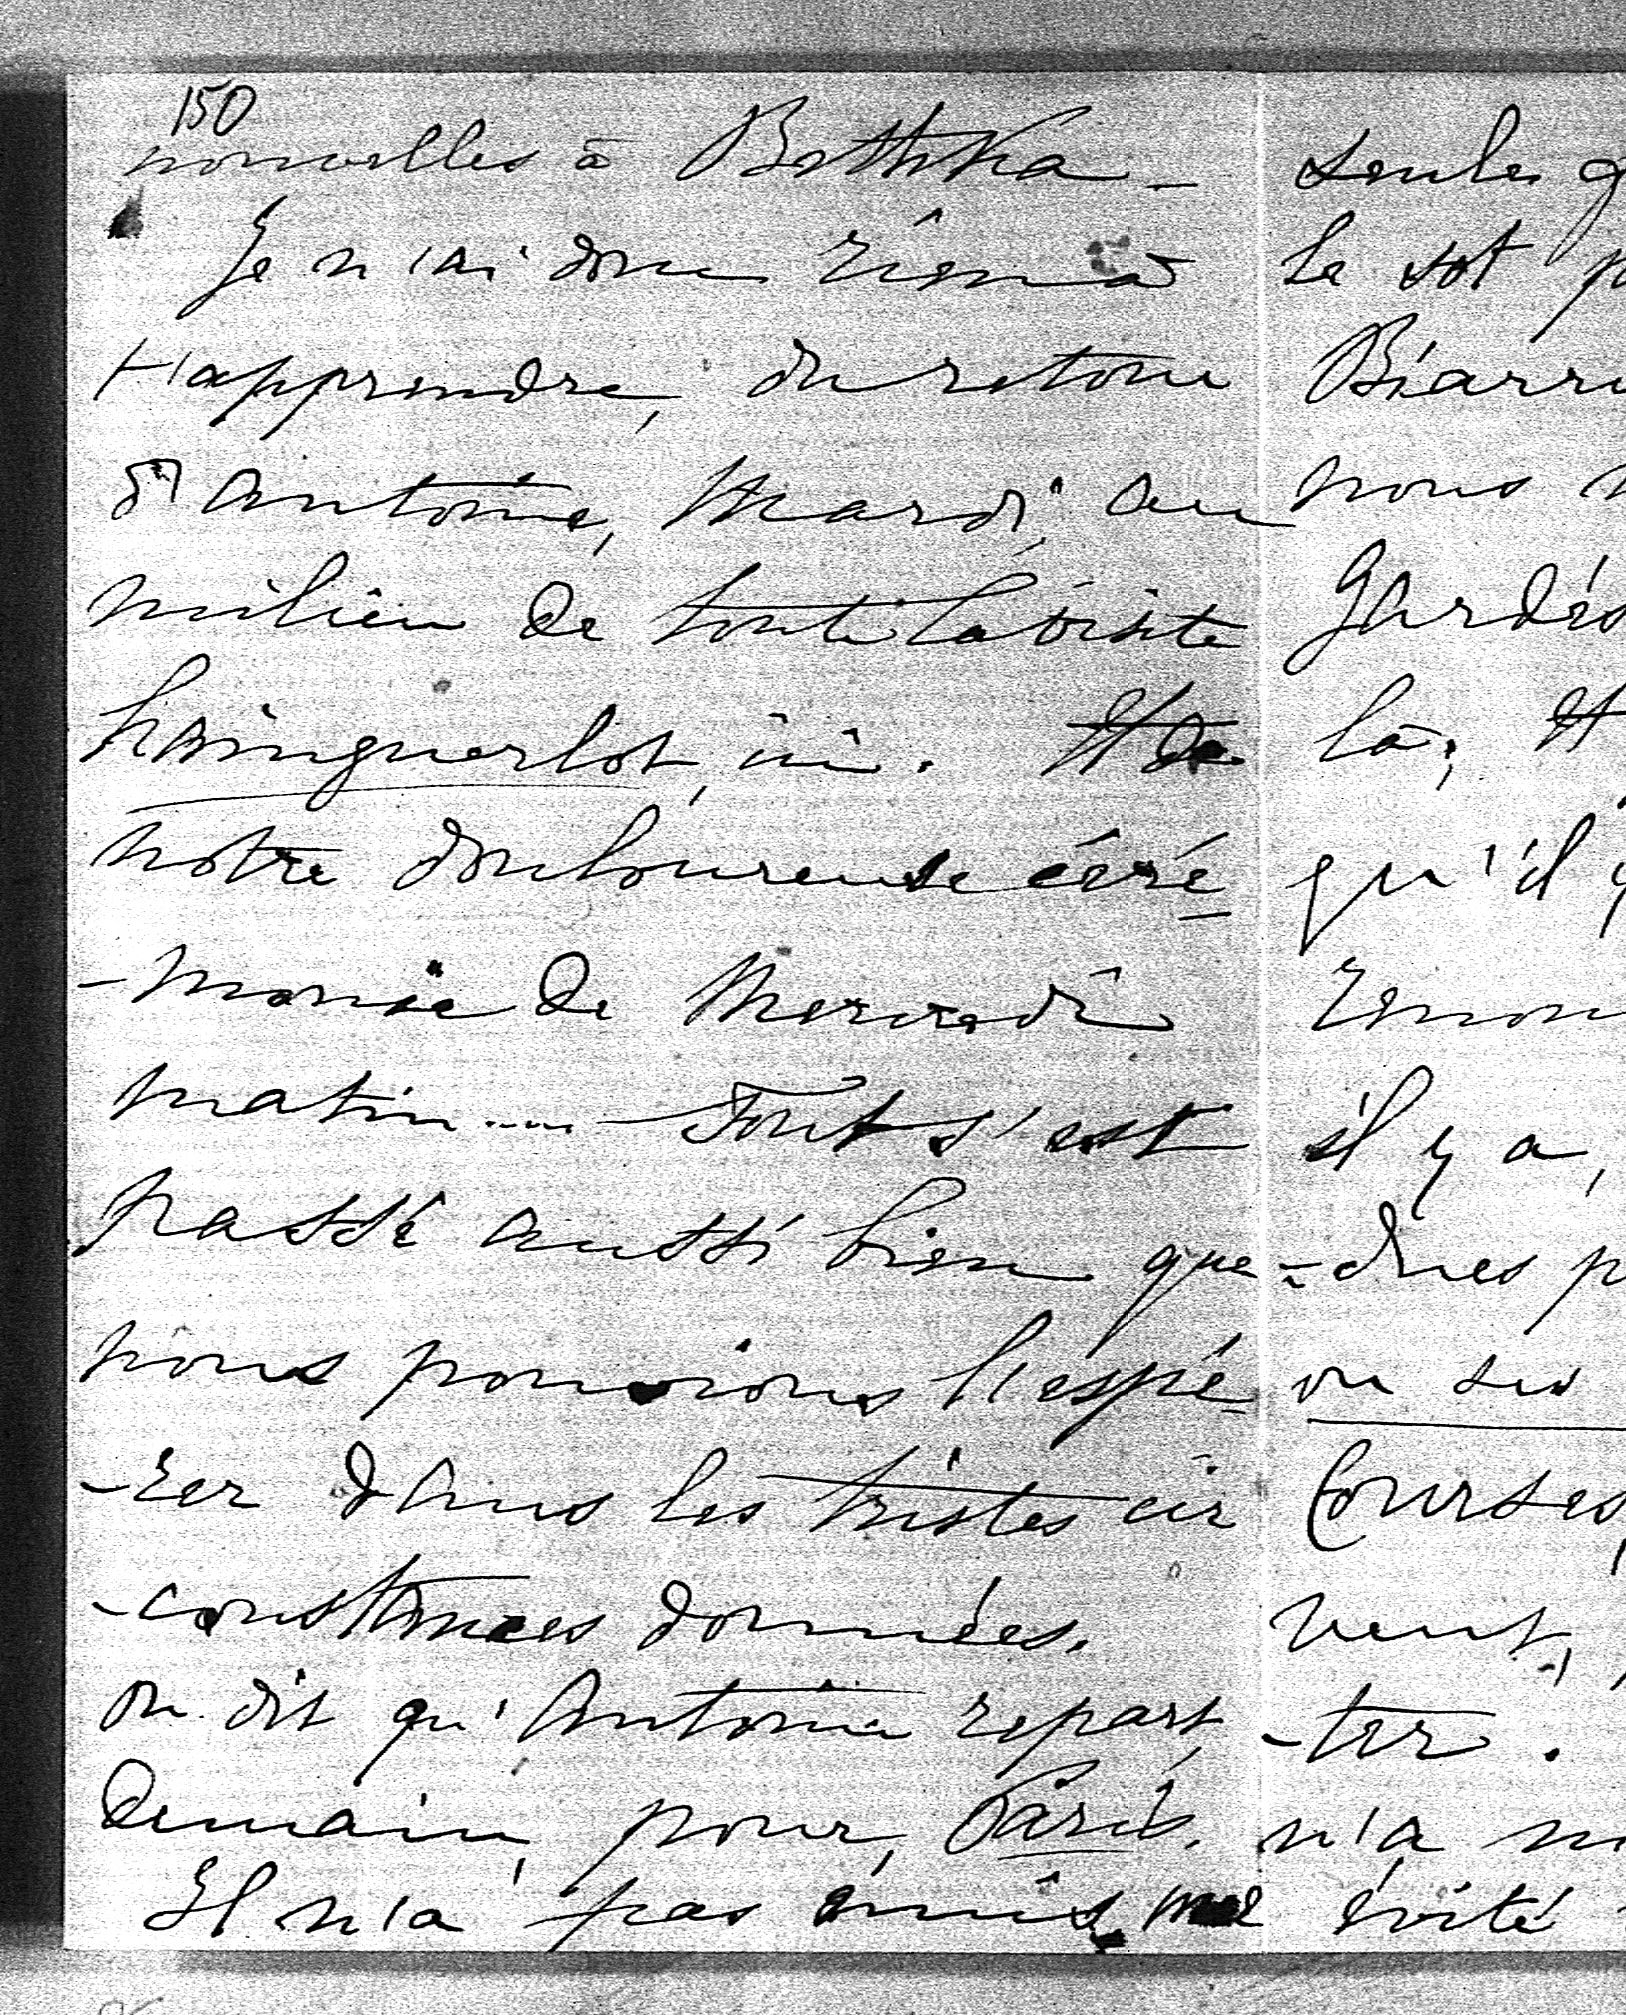 150
nouvelles à Bettka —
Je n'ai donc rien à
t'apprendre, du retour
d'Antoine, Mardi, au
milieu de toute la visite
hainguerlot, ici. Et de
notre douloureuse céré
-monie de Mercredi
matin.... — Tout s'est
passé aussi bien que
nous pouvions l'espé-
-rer dans les tristes cir
-constances données.
on dit qu'Antoine repart,
Demain, pour, Paris.
Il n'a pas émis,
seules q
le sot p
Biarri
nous
Gardés
là; Et
qu'il y
renon
s'il y a,
-dues p
ou ses
Courses,
vent,
-ter.
n'a
évité